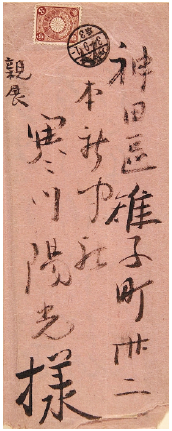 神田区雉子町卅二
日本新聞社
寒川陽光様
親展